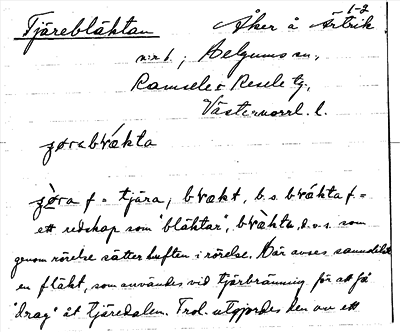 Tjärebläktan
Åker å Ärtrik 1-2
nr 1; Helgums sn,
Ramsele o Resele tg.,
Västernorrl. l.
ȥørabrækta
ȥøra f = tjära, brækt, b.s. brækta f =
ett redskap som "bläktar", brækta, d.v.s. som
genom rörelse sätter luften i rörelse. Här avses sannolikt
en fläkt, som användes vid tjärbränning för att få
"drag" åt tjäredalen. Trol. utgjordes den av ett